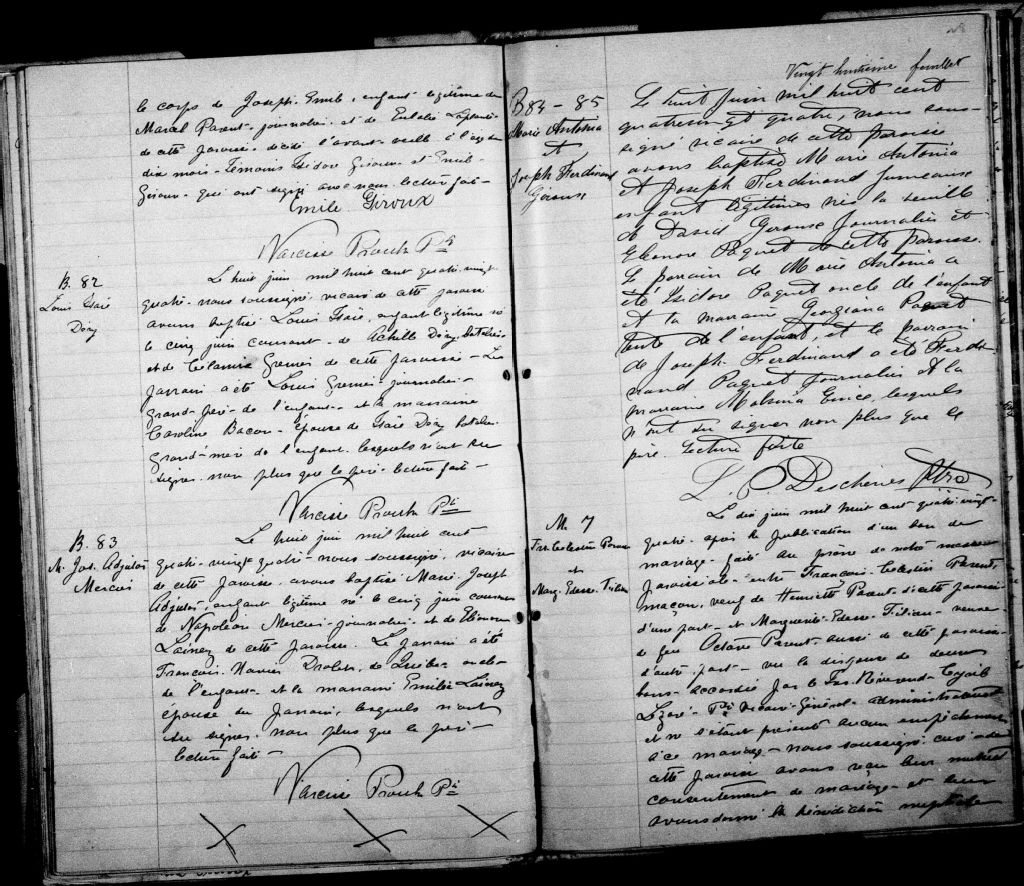 le corps de Joseph Emile, enfant légitime de
Marcel Parent journalier et de Eulalie Laplante
de cette paroisse décédé l'avant-veille à l'age de
dix mois - Témoins Isidore Giroux et Emile
Giroux qui ont signé avec nous lecture faite -
Emile Giroux
Narcisse Proulx Ptr
B. 82
Louis Isaïe
Dory
Le huit juin mil huit cent quatre vingt
quatre nous soussigné, vicaire de cette paroisse
avons baptisé Louis Isaïe, enfant légitime né
le cinq juin courant de Achille Dory batelier
et de Célanire Grenier de cette paroisse - Le
parrain a été Louis Grenier journalier -
grand-père de l'enfant et la marraine
Caroline Bacon épouse de Isaïe Dory batelier
grand'mère de l'enfant lesquels n'ont su
signer non plus que le père lecture faite -
Narcisse Proulx Ptr
B. 83
M. Jos. Adjutor
Mercier
Le huit juin mil huit cent
quatre-vingt quatre nous soussigné, vicaire
de cette paroisse avons baptisé Marie Joseph
Adjutor, enfant légitime né le cinq juin courant
de Napoléon Mercier journalier et de Eléonore
Lainez de cette paroisse. Le parrain a été
François Xavier Drolet, de Québec oncle
de l'enfant et la marraine Emilie Lainez
épouse du parrain, lesquels n'ont
su signer non plus que le père -
lecture faite -
Narcisse Proulx Ptr
Vingt huitième feuillet
B 84 - 85
Marie Antonia
et
Joseph Ferdinand
Giroux
Le huit Juin mil huit cent
quatrevingt quatre, nous sous-
signé vicaire de cette paroisse
avons baptisé Marie Antonia
et Joseph Ferdinand jumeaux
enfant légitimes nés la veille
de David Giroux Journalier et
Eléonore Paquet de cette paroisse.
Le parrain de Marie Antonia a
été Isidore Paquet oncle de l'enfant
et la marraine Georgiana Paquet
tante de l'enfant, et le parrain
de Joseph Ferdinand a été Ferdi-
nand Paquet Journalier et la
marraine lesquels
n'ont su signer non plus que le
père. Lecture faite
L. P. Deschênes Ptre
M. 7
Frs Celestin Parent
et
Marg. Edesse Tilian
Le dix juin mil huit cent quatre vingt-
quatre après la publication d'un ban de
mariage faite au prône de notre messe
paroissiale entre François Celestin Parent,
maçon, veuf de Henriette Parent de cette paroisse
d'une part - et Marguerite Edesse Tilian veuve
de feu Octave Parent aussi de cette paroisse
d'autre part - vu la dispense de deux
bans accordée par le Très Révérend Cyrille
Légaré Ptr Vicaire Général administrateur
et ne s'étant présenté aucun empêchement
à ce mariage - nous soussigné curé de
cette paroisse avons reçu leur mutuel
consentement de mariage et leur
avons donné la bénédiction nuptiale